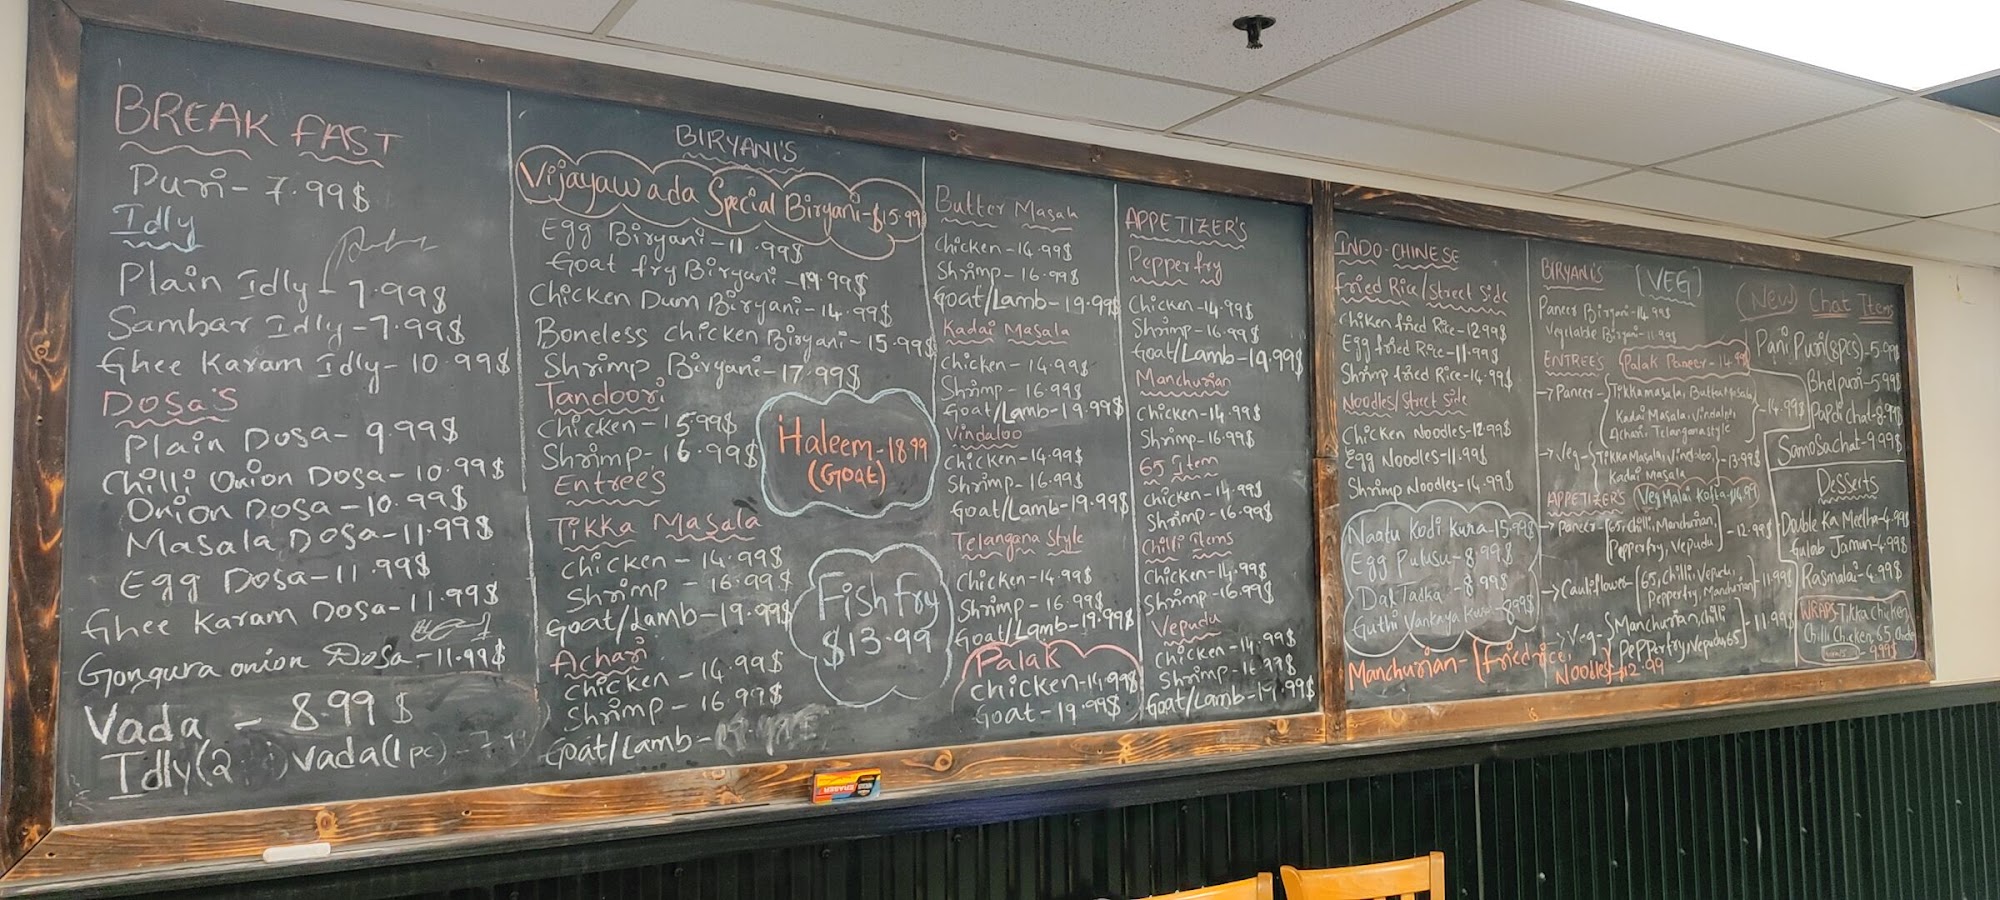 BREAK FAST
Puri- 7.99$
Idly
Plain Idly- 7.99$
Sambar Idly-7.99$
Ghee Karam Idly- 10.99$
DOSA'S
Plain Dosa- 9.99$
Chilli Onion Dosa-10.99$
Onion Dosa-10.99$
Masala Dosa-11.99$
Egg Dosa-11.99$
Ghee Karam Dosa-11.99$
Gongura onion Dosa-11.99$
Vada - 8.99$
Idly(2 ) Vada(1pc)-7.
BIRYANI'S
Vijayawada Special Biryani-$15.99
Egg Biryani-11.99$
Goat fry Biryani-19.99$
Chicken Dum Biryani-14.99$
Boneless chicken Biryani-15.99$
Shrimp Biryani-17.99$
Tandoori
Chicken-15.99$
Shrimp-16.99$
Haleem-18.99
(Goat)
Entree's
Tikka Masala
Chicken-14.99$
Shrimp-16.99$
Goat/Lamb-19.99$
Achari
Chicken-14.99$
Shrimp-16.99$
Goat/Lamb-
Fish fry
$13.99
Butter Masala
Chicken-14.99$
Shrimp-16.99$
Goat/Lamb-19.99$
Kadai Masala
Chicken-14.99$
Shrimp-16.99$
Goat/Lamb-19.99$
Vindaloo
Chicken-14.99$
Shrimp-16.99$
Goat/Lamb-19.99$
Telangana Style
Chicken-14.99$
Shrimp-16.99$
Goat/Lamb-19.99$
Palak
Chicken-14.99$
Goat-19.99$
APPETIZER'S
Pepper fry
Chicken-14.99$
Shrimp-16.99$
Goat/Lamb-19.99$
Manchurian
Chicken-14.99$
Shrimp-16.99$
65 Item
Chicken-14.99$
Shrimp-16.99$
Chilli items
Chicken-14.99$
Shrimp-16.99$
Vepudu
Chicken-14.99$
Shrimp-16.99$
Goat/Lamb-19.99$
INDO-CHINESE
Fried Rice/Street Side
Chiken fried Rice-12.99$
Egg fried Rice-11.99$
Shrimp fried Rice-14.99$
Noodles/Street Side
Chicken Noodles-12.99$
Egg Noodles-11.99$
Shrimp Noodles-14.99$
Naatu Kodi Kura-15.99$
Egg Pulusu-8.99$
Dal Tadka-8.99$
Guthi Vankaya Kura-8.99$
Manchurian-[fried rice,
Noodles]-12.99
[VEG]
BIRYANI'S
Paneer Biryani-14.99$
Vegitable Biryani-11.99$
ENTREE'S Palak Paneer-14.99$
→Paneer-{Tikka masala, Butter Masala
Kadai Masala, Vindaloo
Achari, Telangana style}-14.99$
→Veg-{Tikka Masala, Vindaloo,
Kadai Masala}-13.99$
APPETIZER'S Veg Malai Kofta-14.99
→Paneer-[65, chilli, Manchurian,
Pepperfry, Vepudu]-12.99$
→Cauliflower-[65, Chilli, Vepudu,
Pepperfry, Manchurian]-11.99$
→Veg-{Manchurian, chilli
Pepperfry, Vepudu, 65}-11.99$
(New) Chat Items
Pani Puri(8pcs)-5.99$
Bhelpuri-5.99$
Papdi chat-8.99$
Samosa chat-9.99$
Desserts
Double Ka Meetha-4.99$
Gulab Jamun-4.99$
Rasmalai-4.99$
WRAPS Tikka Chicken,
Chilli Chicken, 65,
-9.99$